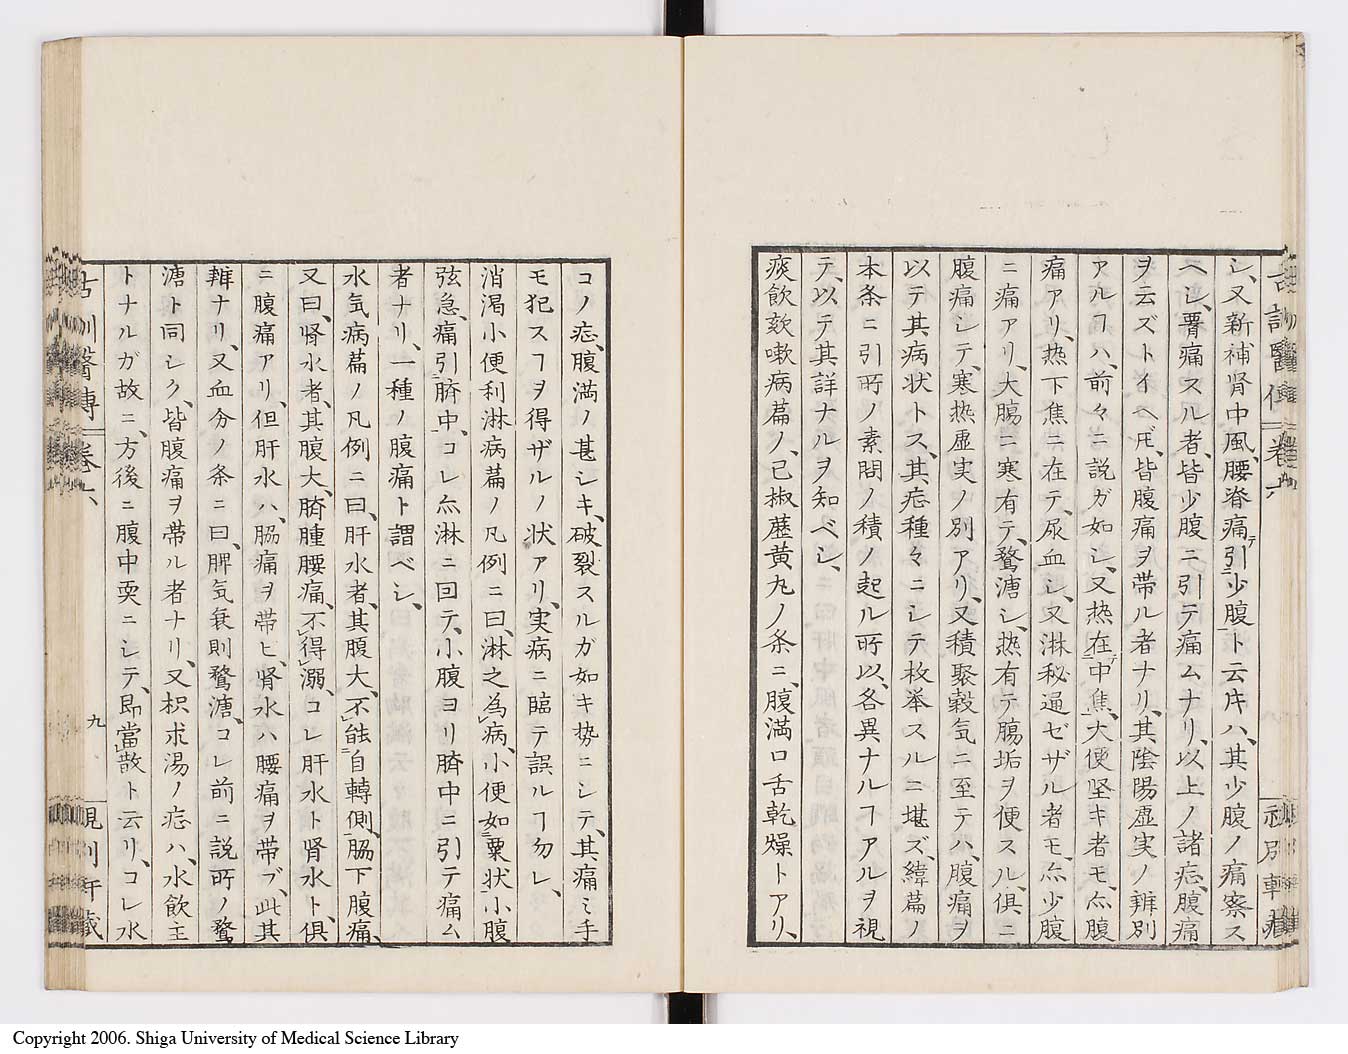 シ、又新補腎中風、腰脊痛テ引ニ少腹ト云店ハ、其少腹ノ痛察ス
ヘシ、胃痛スル者、皆少腹ニ引テ痛ムナリ、以上ノ諸症、腹痛
ヲ云ズトイヘ𪜈、皆腹痛ヲ帯ル者ナリ、其陰陽虚実ノ辨別
アルヿハ、前々ニ説ガ如シ、又热在テ中焦ニ、大便堅キ者モ、亦腹
痛アリ、热下焦ニ在テ、尿血シ、又淋秘通ゼザル者モ、亦少腹
ニ痛アリ、大腸ニ寒有テ、鶩溏シ、热有テ腸垢ヲ便スル、俱ニ
腹痛シテ、寒热虚実ノ別アリ、又積聚穀気ニ至テハ、腹痛ヲ
以テ其病状トス、其症種々ニシテ枚挙スルニ堪ズ、緯萹ノ
本条ニ引所ノ素問ノ積ノ起ル所以、各異ナルヿアルヲ視
テ、以テ其詳ナルヲ知ベシ、
痰飲欬嗽病萹ノ、已椒藶黄丸ノ条ニ、腹満口舌乾燥トアリ、
コノ症、腹満ノ甚シキ、破裂スルガ如キ势ニシテ、其痛ミ手
モ犯スヿヲ得ザルノ状アリ、実病ニ臨テ誤ルヿ勿レ、
消渇小便利淋病萹ノ凡例ニ曰、淋之為病、小便如ニ粟状、小腹
弦急、痛引ニ臍中、コレ亦淋ニ因テ、小腹ヨリ臍中ニ引テ痛ム
者ナリ、一種ノ腹痛ト謂ベシ、
水気病萹ノ凡例ニ曰、肝水者、其腹大、不能ニ自轉側、脇下腹痛、
又曰、腎水者、其腹大、臍腫腰痛、不得溺、コレ肝水ト腎水ト、俱
ニ腹痛アリ、但肝水ハ、脇痛ヲ帯ヒ、腎水ハ腰痛ヲ帯ブ、此其
辨ナリ、又血分ノ条ニ曰、脾気衰則鶩溏、コレ前ニ説所ノ鶩
溏ト同シク、皆腹痛ヲ帯ル者ナリ、又枳朮湯ノ症ハ、水飲主
トナルガ故ニ、方後ニ腹中耎ニシテ、即當散ト云リ、コレ水
古訓醫傳 卷六
九
Copyright 2006. Shiga University of Medical Science Library